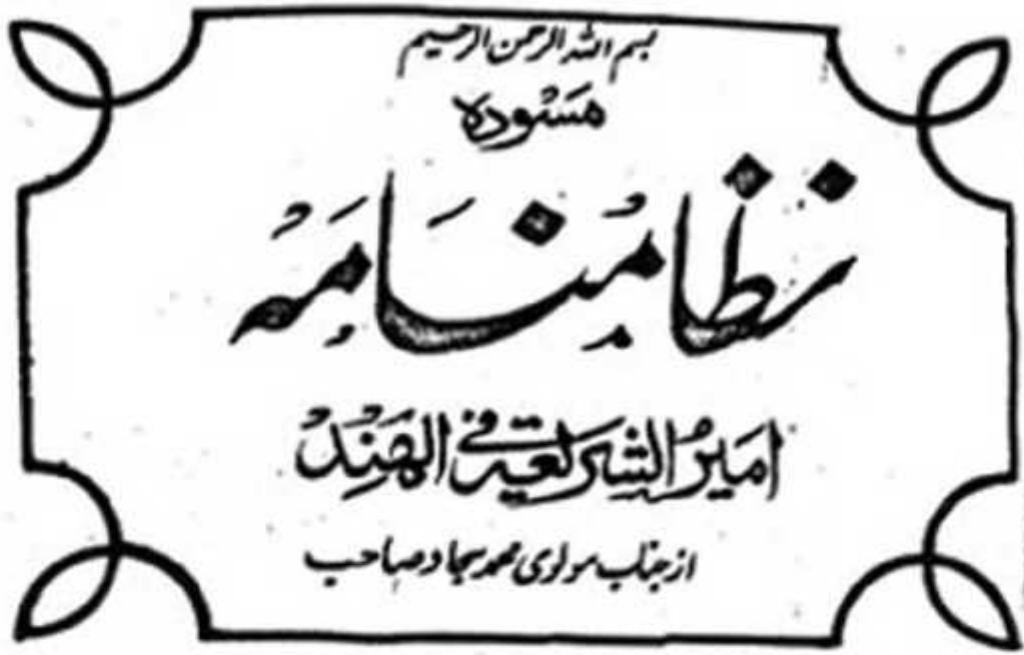 بسم اللہ الرحمن الرحیم
مسودہ
نظامنامہ
امیر الشریعۃ فی الھند
از جناب مولوی محمد سجاد صاحب